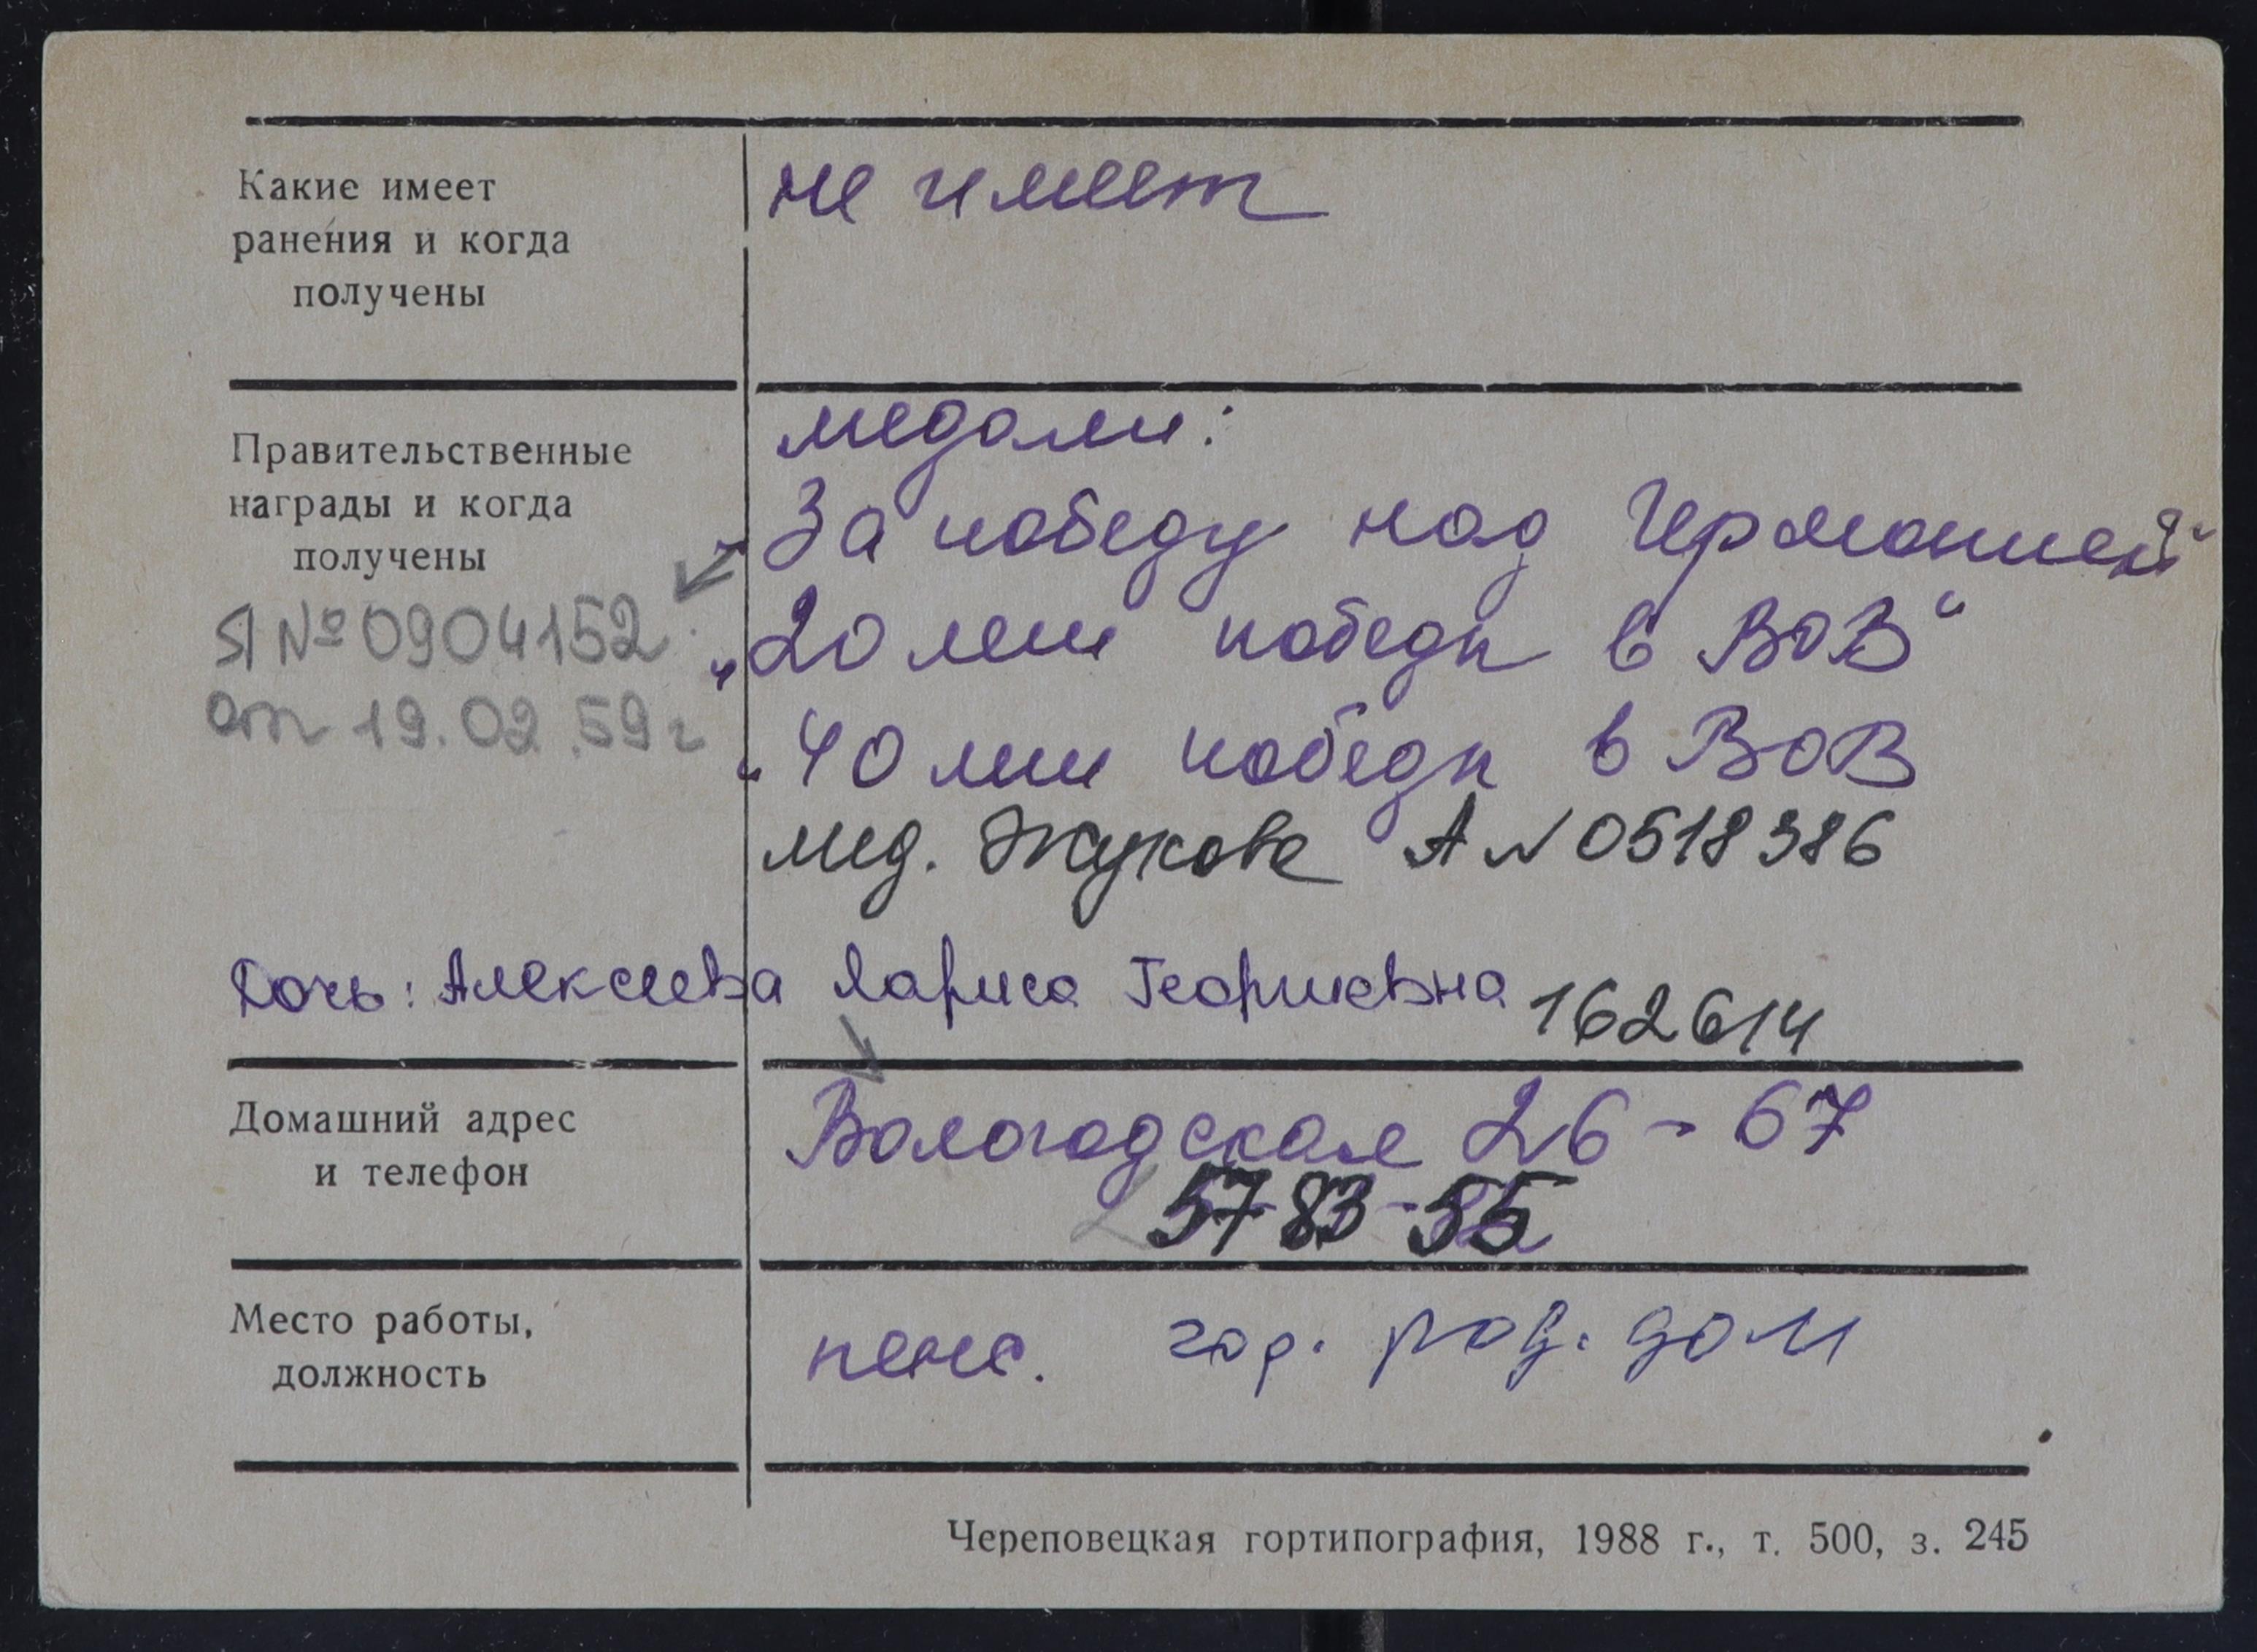 Какие имеет
ранения и когда
получены
не имеет
Правительственные
награды и когда
получены
Я № 0904152
от 19.02.59 г
медали:
За победу над Германией"
„20 лет победы в ВОВ"
„40 лет победы в ВОВ
мед. Жукова А N 0518386
Дочь: Алексеева Лариса Георгиевна 162614
Домашний адрес
и телефон
Вологодская 26-67
5783-55
Место работы,
должность
пенс. гор. род. дом
Череповецкая гортипография, 1988 г., т. 500, з. 245